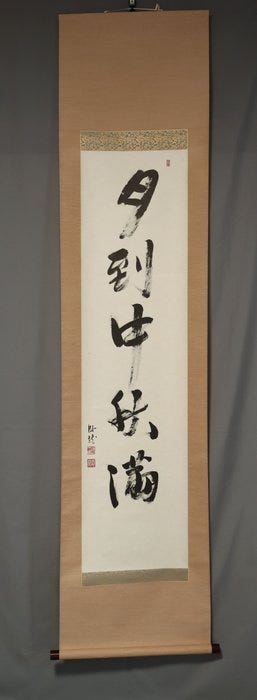 月到中秋滿